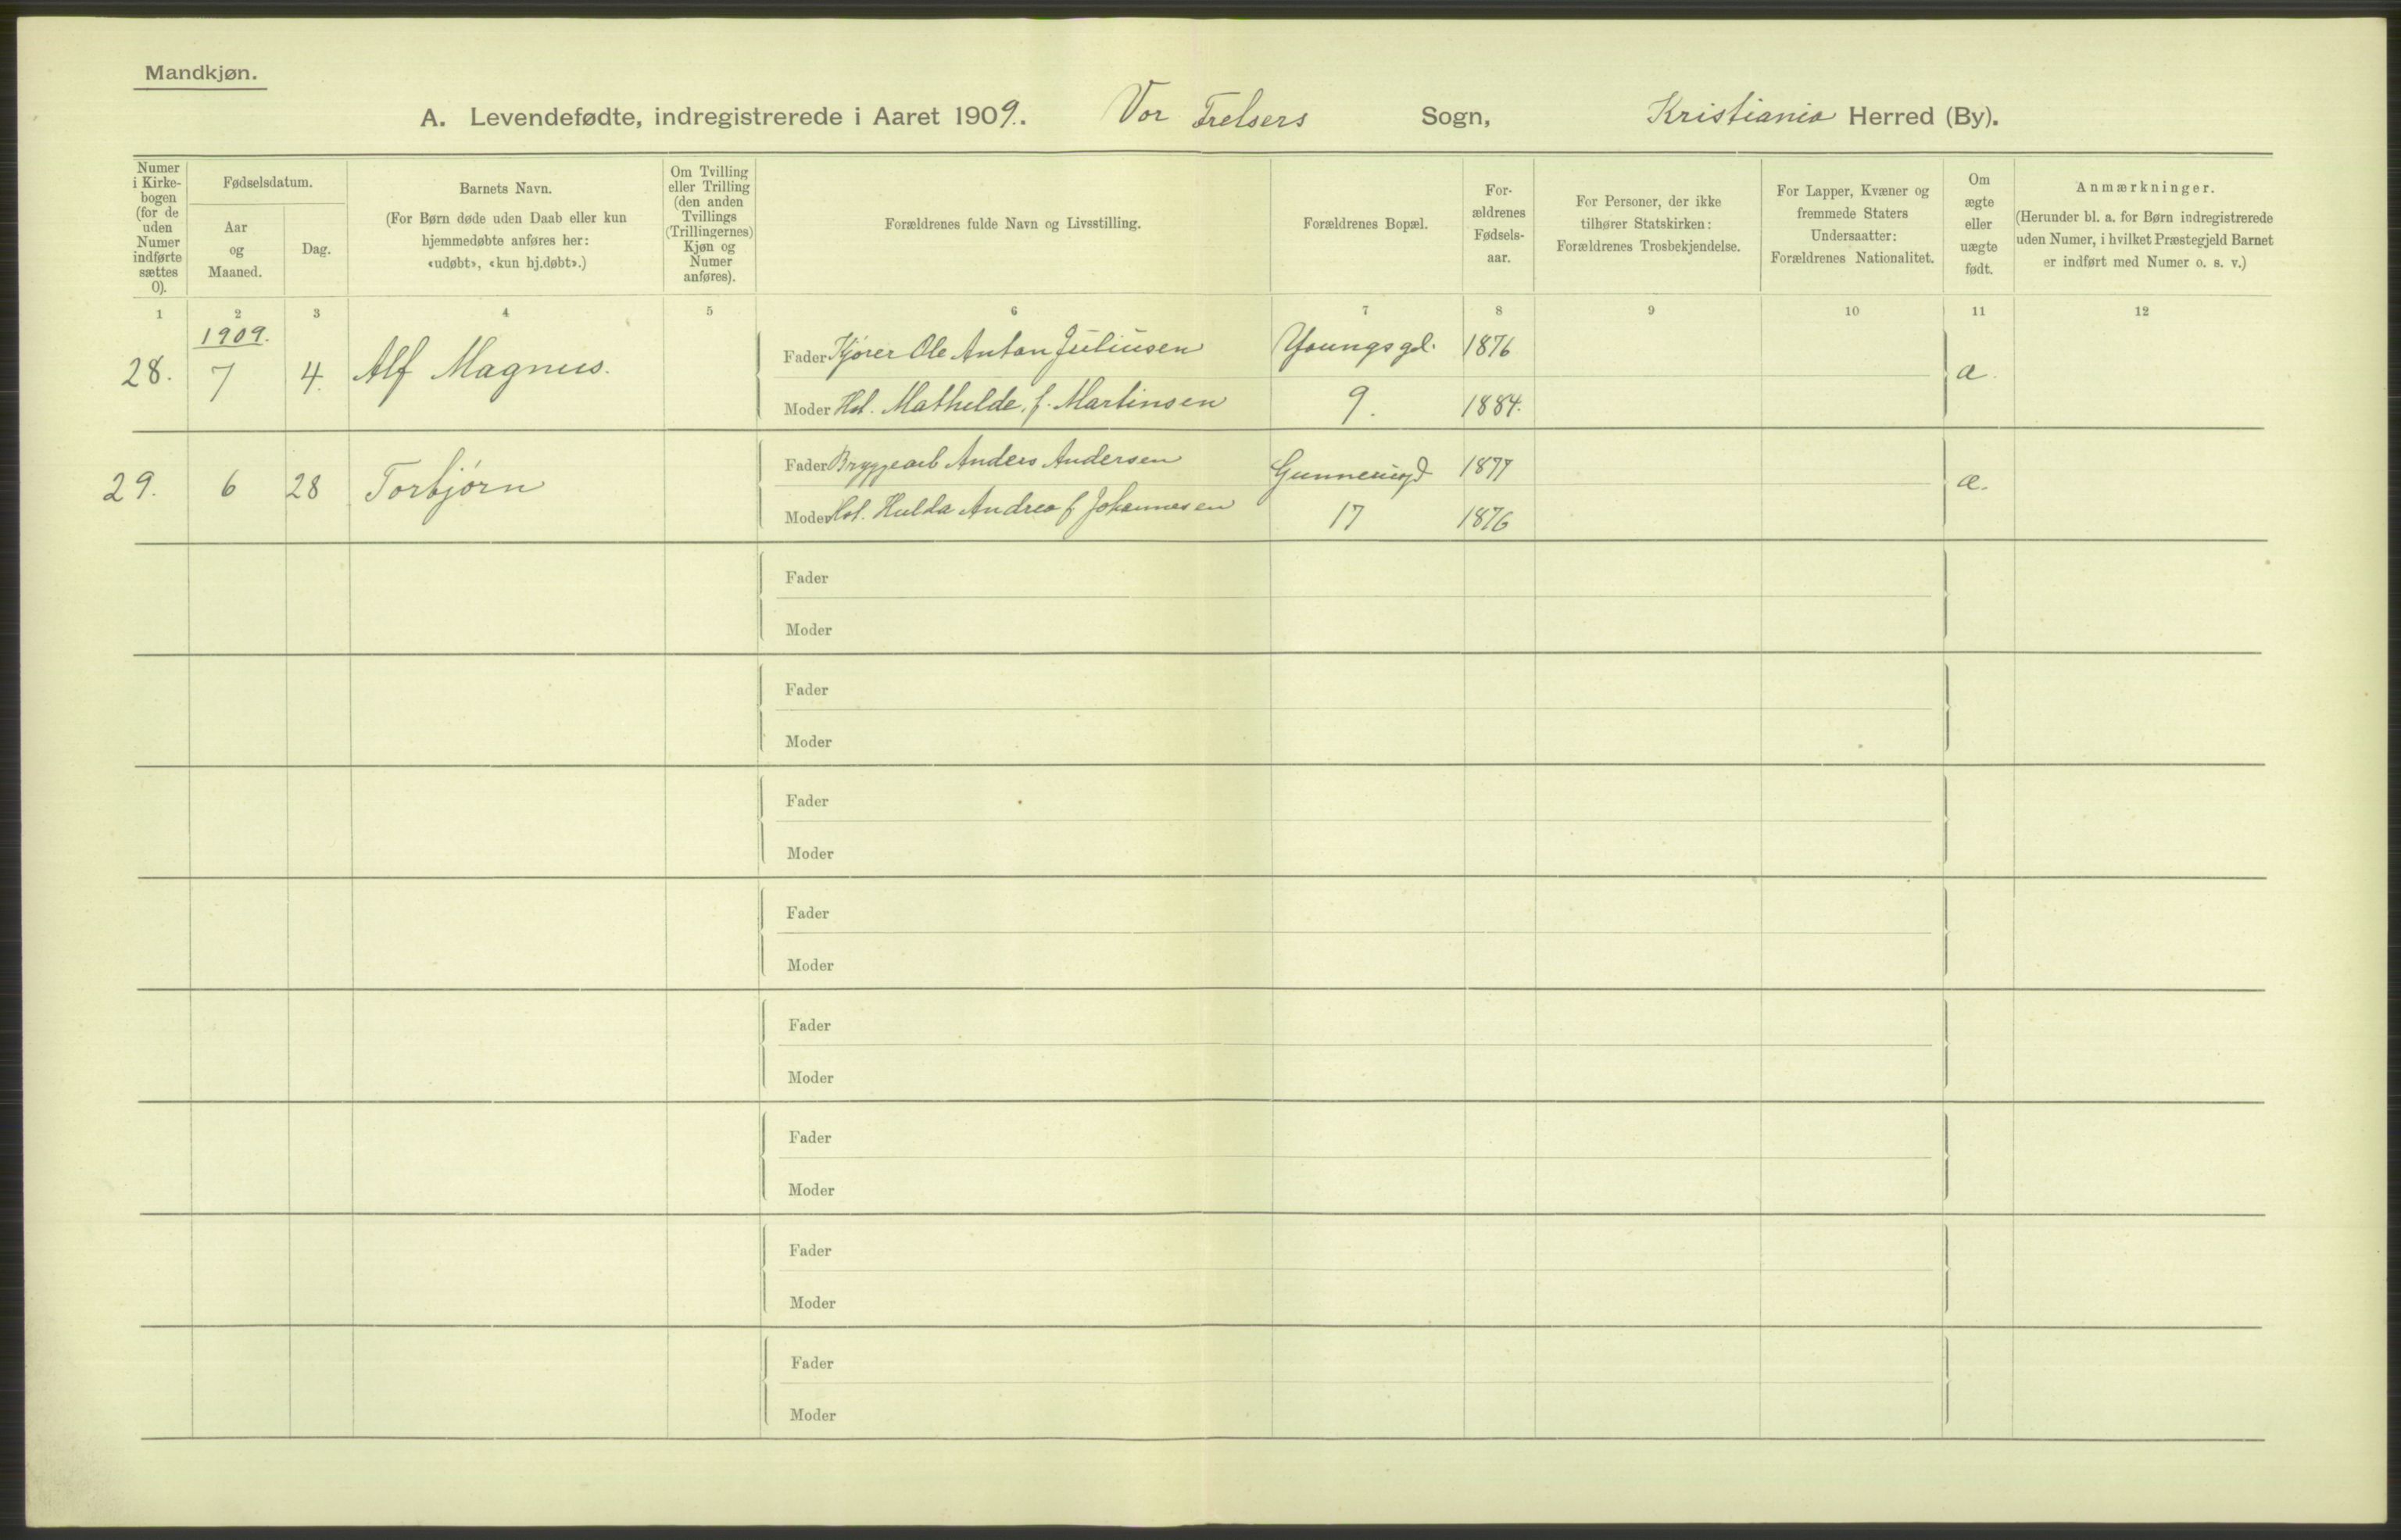 Mandkjøn.
A. Levendefødte, indregistrerede i Aaret 1909. Vor Frelsers Sogn, Kristiania Herred (By).
Numer i Kirke-bogen (for de uden Numer indførte sættes 0).
Fødselsdatum.
Aar og Maaned.
Dag.
Barnets Navn.
(For Børn døde uden Daab eller kun hjemmedøbte anføres her: «udøbt», «kun hj.døbt».)
Om Tvilling eller Trilling (den anden Tvillings (Trillingernes) Kjøn og Numer anføres).
Forældrenes fulde Navn og Livsstilling.
Forældrenes Bopæl.
For-ældrenes Fødsels-aar.
For Personer, der ikke tilhører Statskirken: Forældrenes Trosbekjendelse.
For Lapper, Kvæner og fremmede Staters Undersaatter: Forældrenes Nationalitet.
Om ægte eller uægte født.
Anmærkninger.
(Herunder bl. a. for Børn indregistrerede uden Numer, i hvilket Præstegjeld Barnet er indført med Numer o. s. v.)
1 2 3 4 5 6 7 8 9 10 11 12
1909.
28. 7 4. Alf Magnus. Fader Kjører Ole Anton Juliusen Youngsgd. 1876 æ.
Moder Hst. Mathilde, f. Martinsen 9. 1884.
29. 6 28 Torbjørn Fader Bryggearb Anders Andersen Gunnerusgd 1877 æ.
Moder Hst. Hulda Andrea f Johannesen 17 1876
Fader
Moder
Fader
Moder
Fader
Moder
Fader
Moder
Fader
Moder
Fader
Moder
Fader
Moder
Fader
Moder